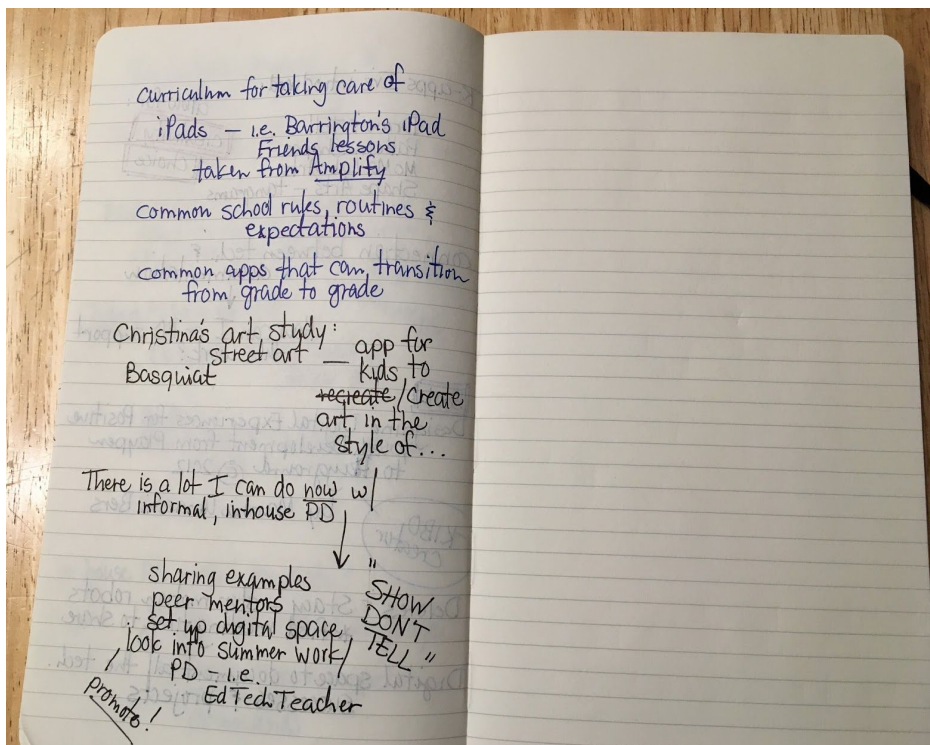 curriculum for taking care of
iPads – i.e. Barrington's iPad
Friends lessons
taken from Amplify
common school rules, routines &
expectations
common apps that can transition
from grade to grade
Christina's art study:
street art — app for
Basquiat kids to
recreate/create
art in the
style of...
There is a lot I can do now w/
informal, in-house PD
sharing examples
peer mentors
set up digital space
look into summer work/
PD – i.e.
EdTechTeacher
"SHOW
DON'T
TELL"
promote!